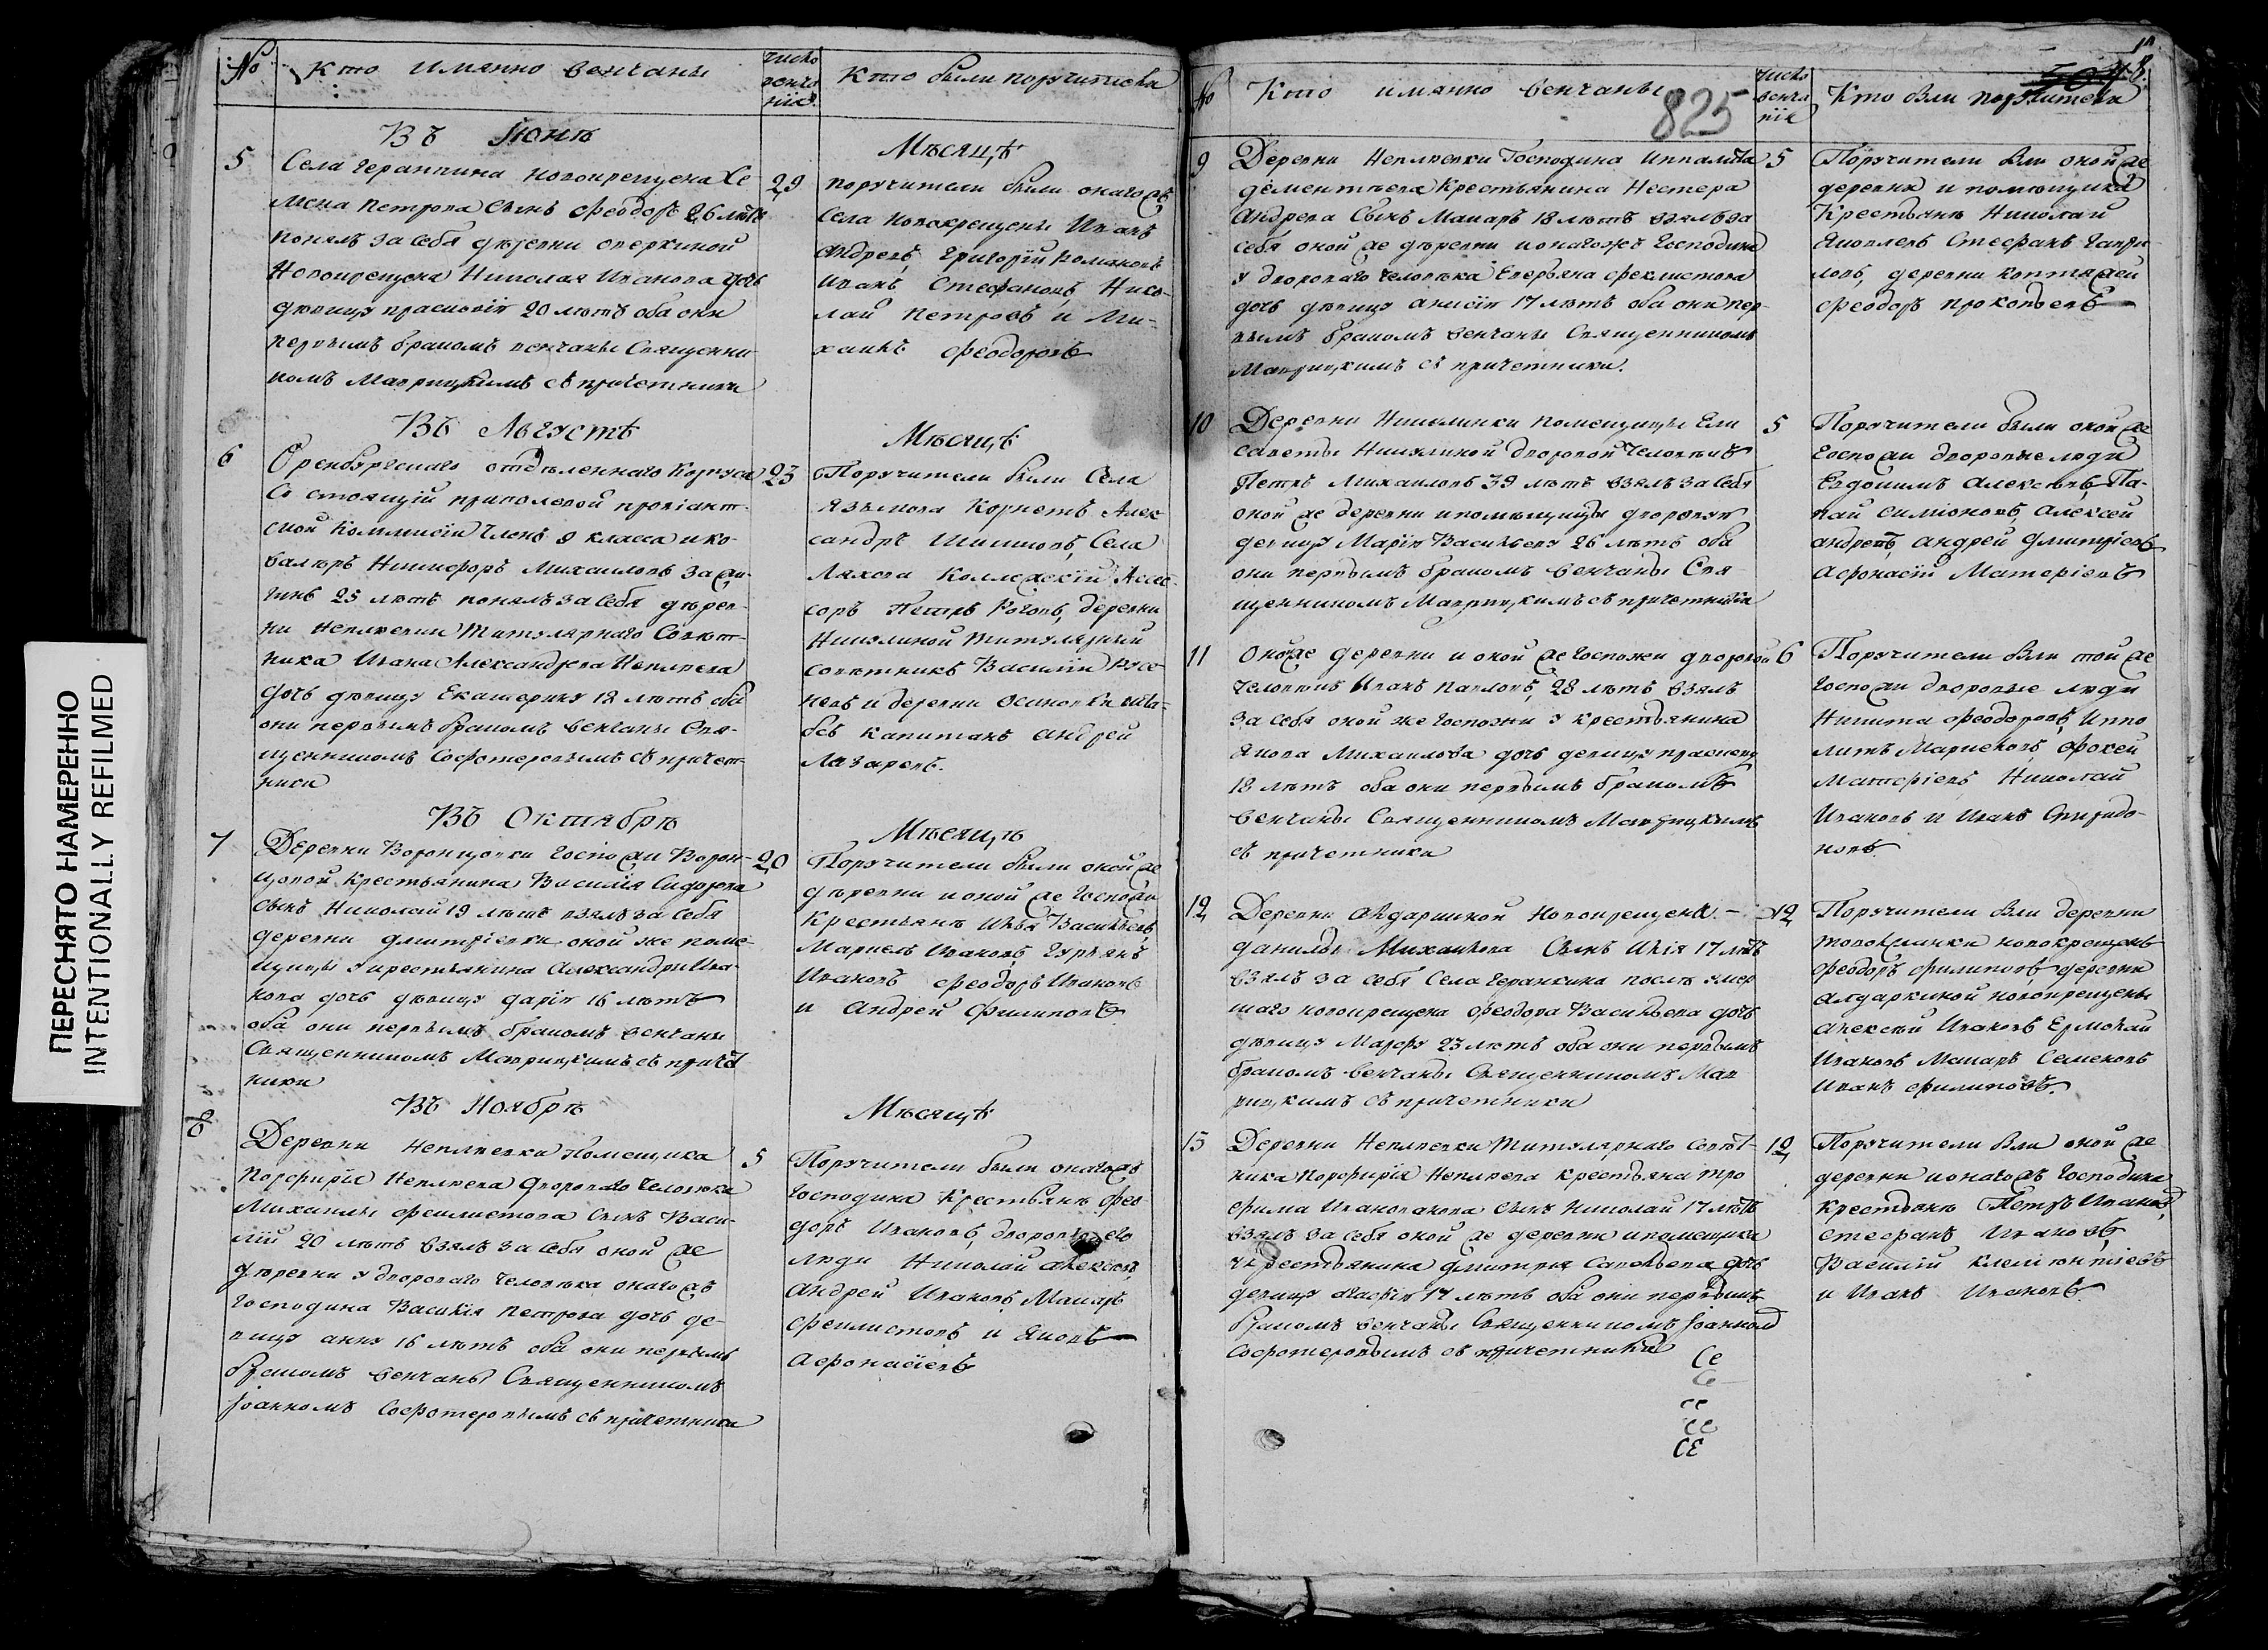 ПЕРЕСНЯТО НАМЕРЕННО
INTENTIONALLY REFILMED
№
Кто имянно венчаны
число
венча
нія
Кто были поручители
Въ Іюнѣ
Мѣсяцѣ
5
Села Геранкина новокрещена Се
мена Петрова сынъ Феодоръ 26 лѣтъ
понялъ за себя дѣревни
Новокрещена Николая Иванова дочь
дѣвицу Прасковію 20 лѣтъ оба они
первымъ бракомъ венчаны Священни
комъ Маврицкимъ съ причетники
29
поручители были онагожъ
Села новокрещены Иванъ
Андреевъ, Григорій
Иванъ Стефановъ, Нико-
лай Петровъ и Ми-
хаилъ Феодоровъ
Въ Августѣ
Мѣсяцѣ
6
Оренбургскаго отдѣленнаго Корпуса
Со стоящій приполевой провіант-
ской Коммисіи Членъ 9 класса и ка-
валеръ Никифоръ Михаиловъ
25 лѣтъ понялъ за себя дѣрев-
ни Неплюевки Титулярнаго Совѣт-
ника Ивана Александрова Неплюева
дочь дѣвицу Екатерину 18 лѣтъ оба
они первымъ бракомъ венчаны Свя-
щенникомъ Софотеровымъ съ причет-
ники
23
Поручители были Села
Языкова Корнетъ Алек
сандръ Села
Ляхова Коллежскій Ассес-
соръ Петръ Роговъ, деревни
Никулиной Титулярный
совѣтникъ Василій
и деревни Осиновки шта-
бсъ капитанъ Андрей
Лазаревъ.
Въ Октябрѣ
Мѣсяцѣ
7
Деревни Воронцовки Госпожи Ворон-
цовой крестьянина Василія Сидорова
сынъ Николай 19 лѣтъ взялъ за себя
деревни Дмитріевки оной же поме-
щицы у крестьянина Александры Ива-
нова дочь дѣвицу Дарію 16 лѣтъ
оба они первымъ бракомъ венчаны
Священникомъ Маврицкимъ съ причет
ники
20
Поручители были онойже
дѣревни и оной же Госпожи
Крестьянъ Илья Васильевъ,
Маркелъ Ивановъ, Гурьянъ
Ивановъ Феодоръ Ивановъ
и Андрей Филиповъ
Въ Ноябрѣ
Мѣсяцѣ
8
Деревни Неплюевки Помещика
Порфирія Неплюева дворового человека
Михаилы Феклистова сынъ Васи-
лій 20 лѣтъ взялъ за себя оной же
дѣревни у двороваго человѣка онагожъ
Господина Василія Петрова дочь де-
вицу Анну 16 лѣтъ оба они первымъ
бракомъ венчаны Священникомъ
Іоанномъ Софотеровымъ съ причетники
5
Поручители были онагожъ
Господина Крестьянъ Фео
доръ Ивановъ, дворовые его
люди Николай Алексеевъ,
Андрей Ивановъ, Макаръ
Феклистовъ и Яковъ
Афонасіевъ
№
Кто имянно венчаны
825
число
венча
нія
Кто были поручители
9
Деревни Неплюевки Господина Ипполита
Дементьева Крестьянина Нестера
Андреева Сынъ Макаръ 18 лѣтъ взялъ за
себя оной же дѣревни и онагожъ Господина
у двороваго человѣка Емельяна Феклистова
дочь дѣвицу Анисію 17 лѣтъ оба они пер-
вымъ бракомъ венчаны Священникомъ
Маврицкимъ съ причетники.
5
Поручители были оной же
деревни и помещика
Крестьянъ Николай
Яковлевъ Стефанъ Гаври-
ловъ, деревни
Феодоръ Прокопьевъ
10
Деревни Никулинки Помещицы Ели
саветы Никулиной дворовой человекъ
Петръ Михаиловъ 39 лѣтъ взялъ за себя
оной же деревни и помѣщицы дворовую
девицу Марію Васильеву 26 лѣтъ оба
они первымъ бракомъ венчаны Свя-
щенникомъ Маврицкимъ съ причетники
5
Поручители были оной же
Госпожи дворовые люди
Евдокимъ Алексеевъ,
Симіоновъ, Алексей
Андреевъ, Андрей Дмитріевъ
Афонасій
11
Оной же деревни и оной же госпожи дворовой
человекъ Иванъ Павловъ, 28 лѣтъ взялъ
за себя оной же госпожи у крестьянина
Якова Михаилова дочь девицу Прасковью
18 лѣтъ оба они первымъ бракомъ
венчаны Священникомъ Маврицкимъ
съ причетники
6
Поручители были той же
Госпожи дворовые люди
Никита Феодоровъ, Иппо
литъ Маркеловъ,
Николай
Ивановъ и Иванъ Спиридо-
новъ.
12
Деревни Алдаркиной Новокрещена
Данилы Михаилова Сынъ Илія 17 лѣтъ
взялъ за себя Села Геранкина послѣ умер
шаго новокрещена Феодора Васильева дочь
дѣвицу Марфу 23 лѣтъ оба они первымъ
бракомъ венчаны Священникомъ Мав
рицкимъ съ причетники
12
Поручители были деревни
новокрещенъ
Феодоръ Филиповъ, деревни
Алдаркиной новокрещены
Алексей Ивановъ Ермолай
Ивановъ Макаръ Семеновъ
Иванъ Филиповъ.
13
Деревни Неплюевки Титулярнаго совѣт-
ника Порфирія Неплюева крестьяна Тро
фима сынъ Николай 17 лѣтъ
взялъ за себя оной же деревни и помещика
у крестьянина Дмитрія Савельева дочь
девицу 17 лѣтъ оба они первымъ
бракомъ венчаны Священникомъ Іоанномъ
Софотеровымъ съ причетники
12
Поручители были оной же
деревни и онагожъ Господина
крестьянъ Петръ Ивановъ,
Стефанъ Ивановъ,
Василій Клементіевъ
и Иванъ Ивановъ.